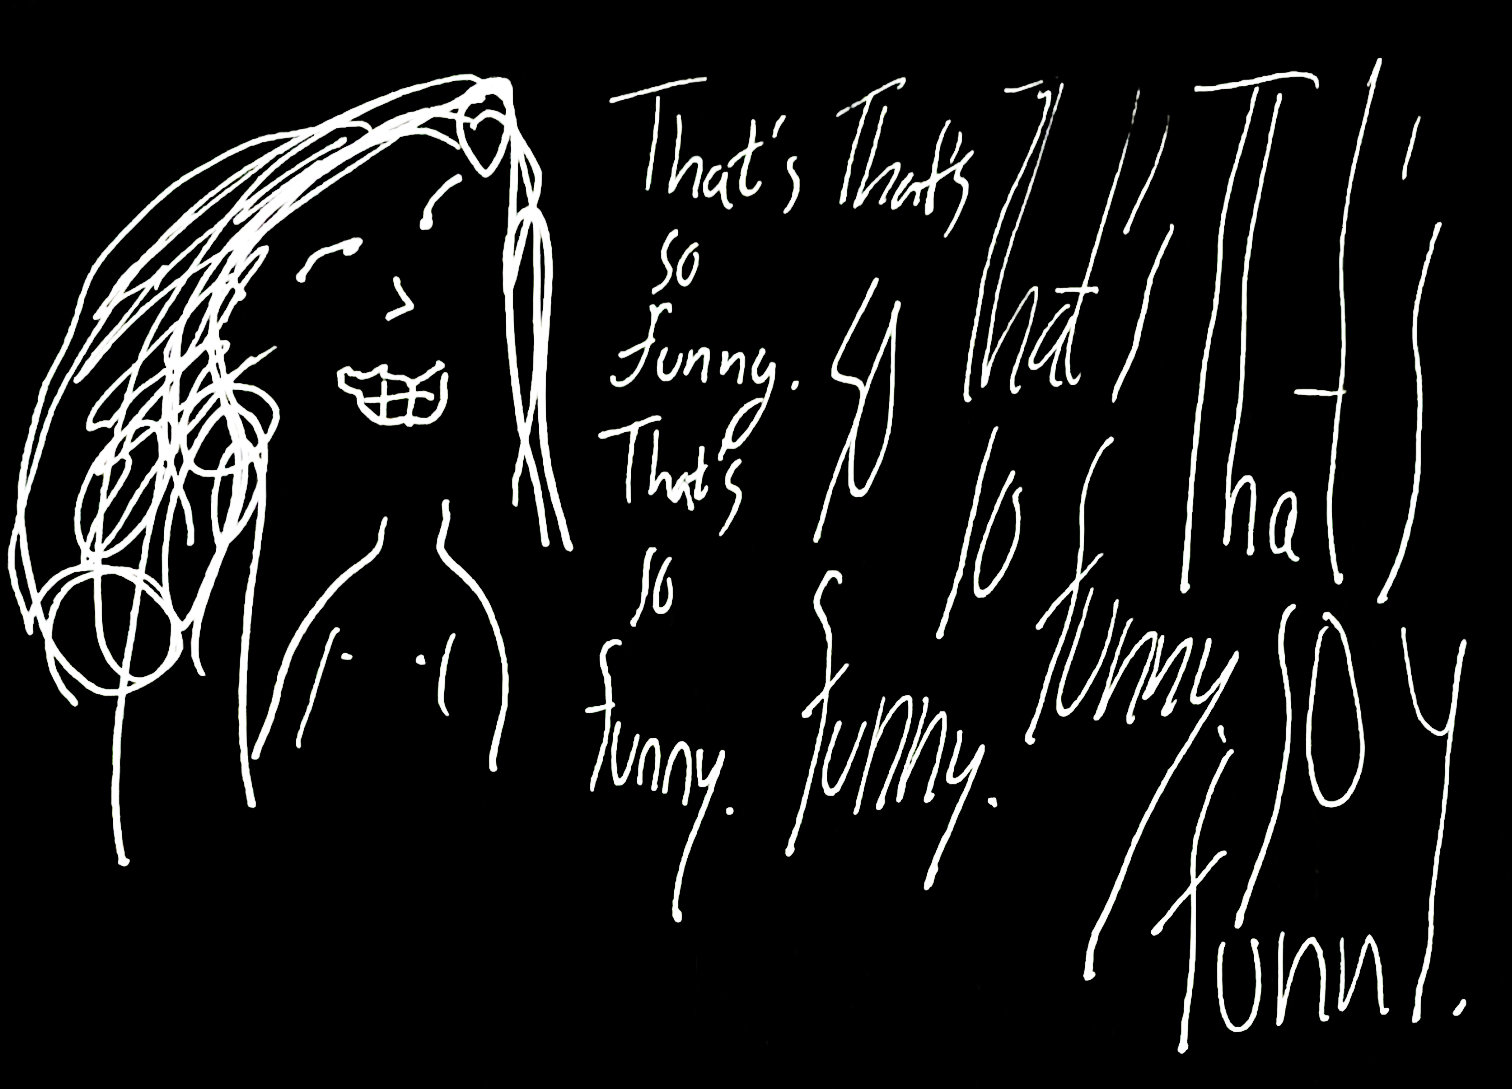 That's
so
funny.
That's
so
funny.
That's
so
funny.
That's
so
funny.
That's
so
funny.